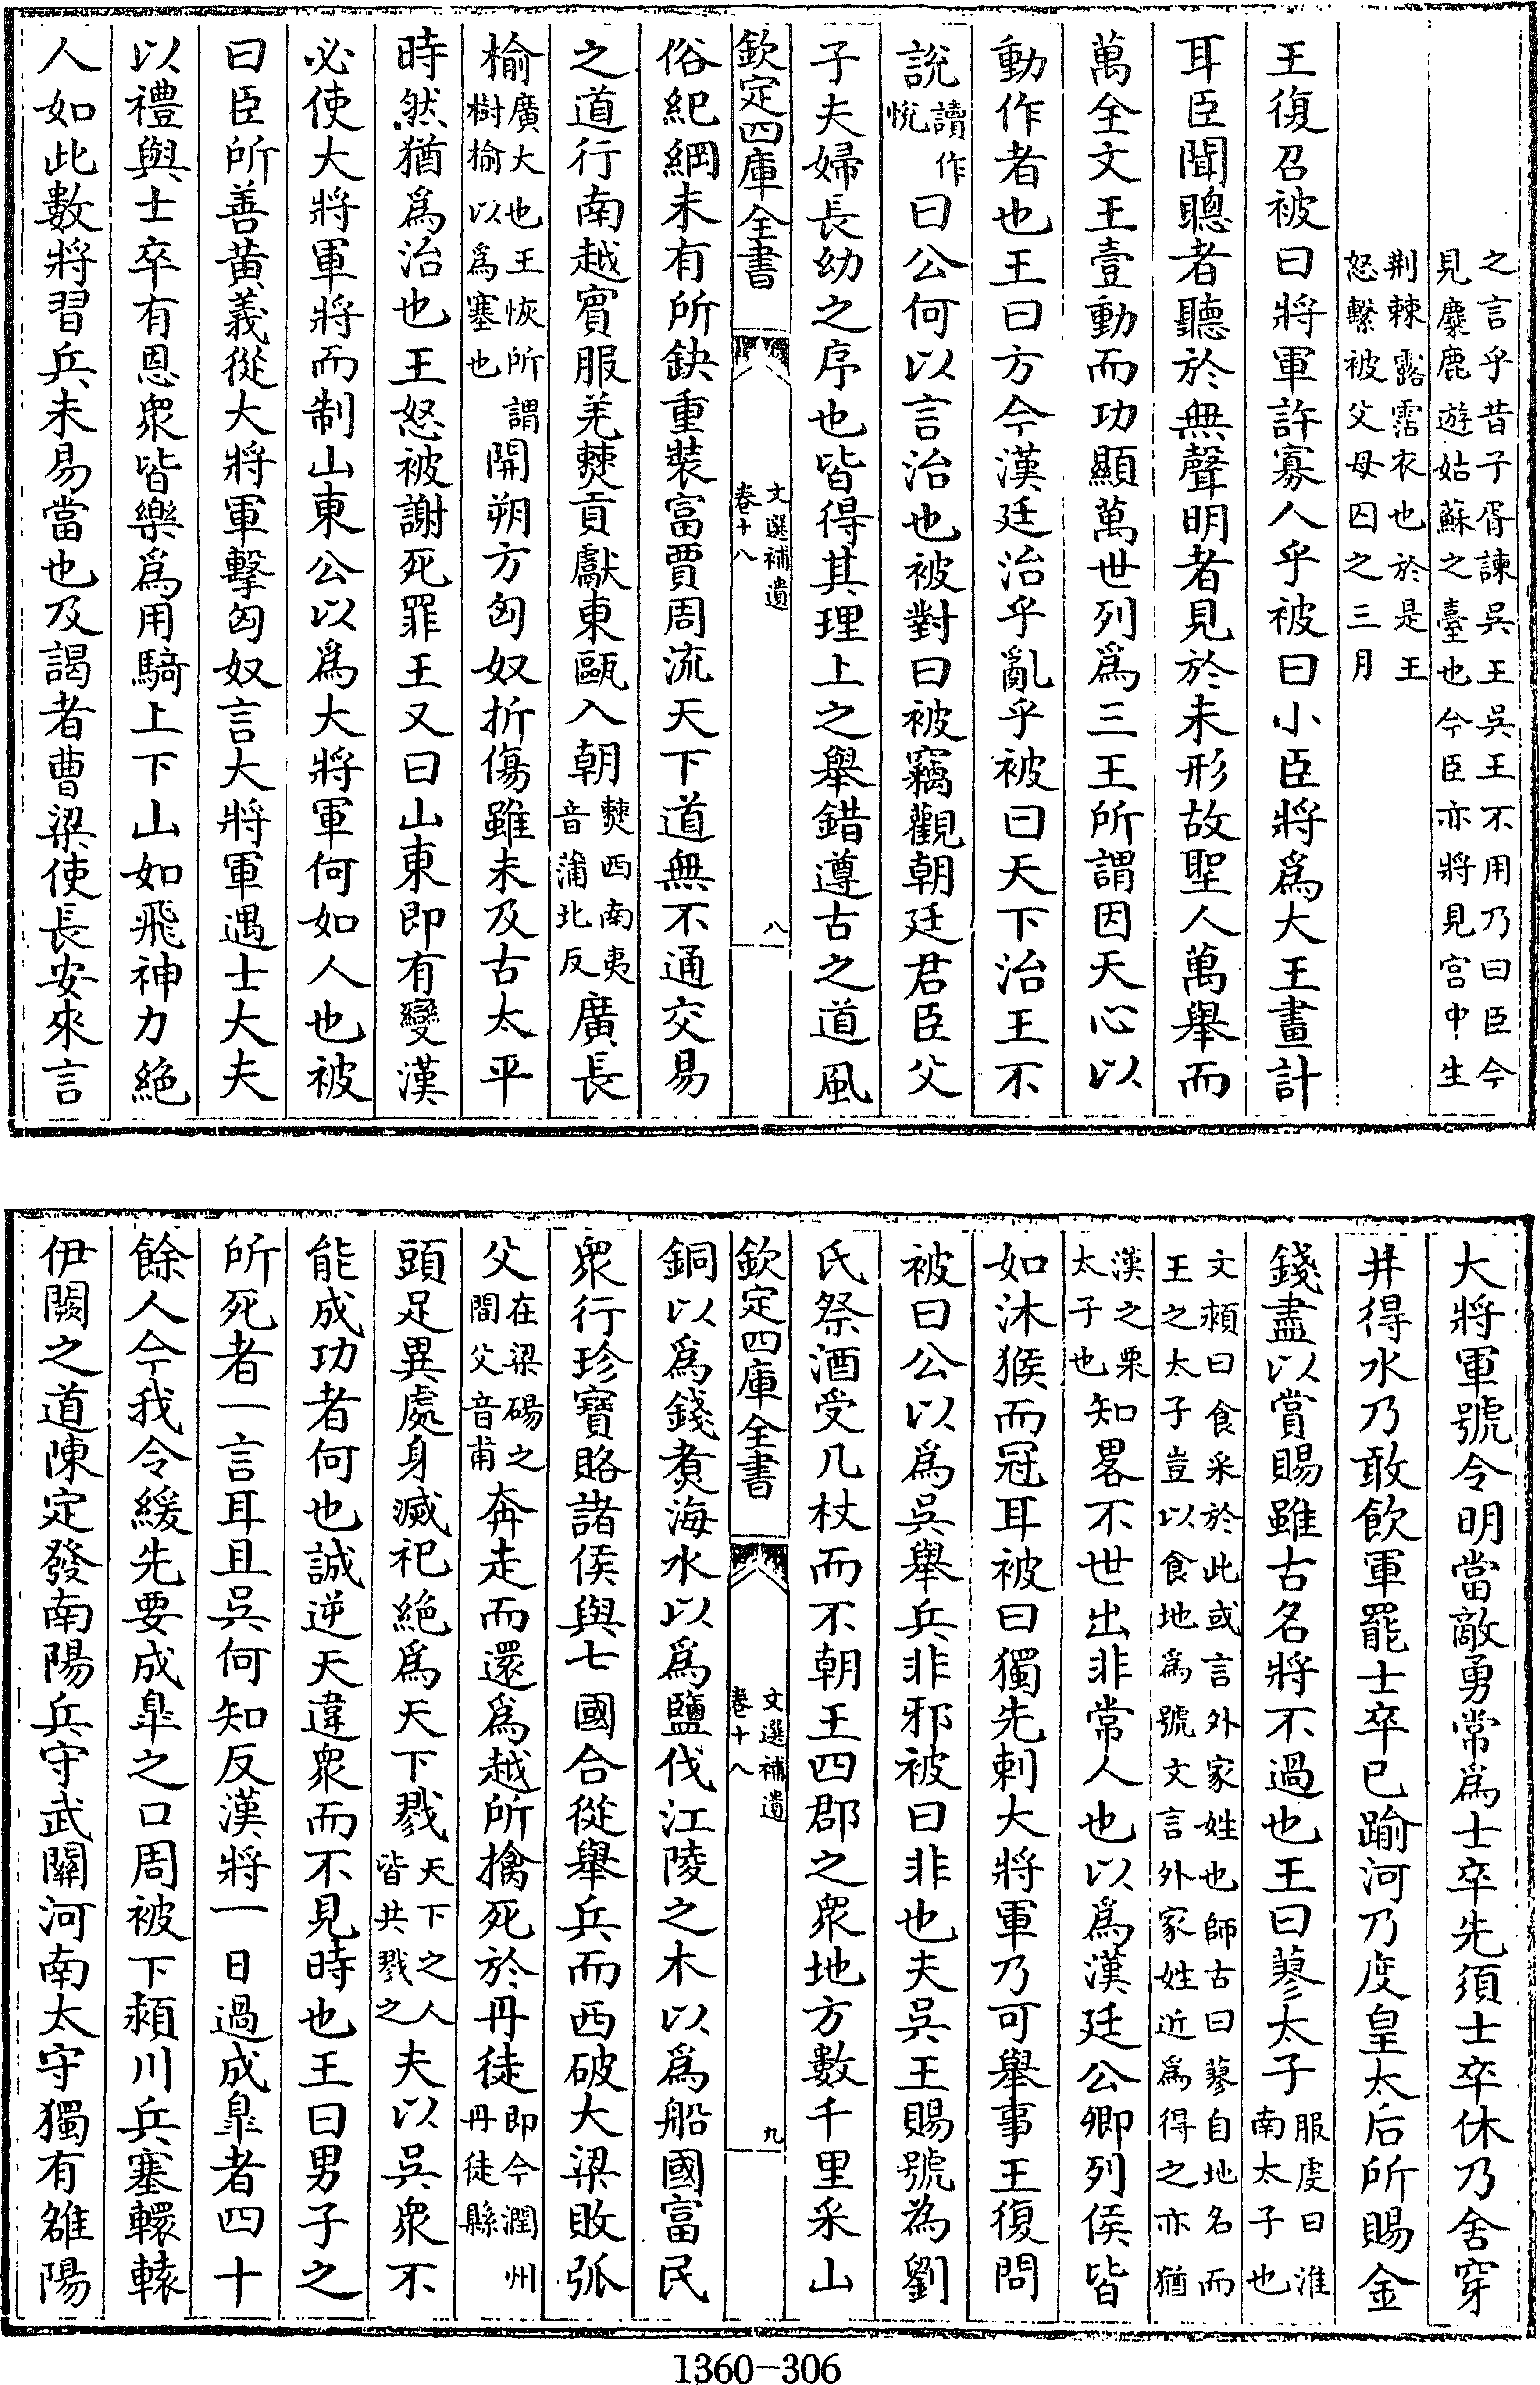 之言乎昔子胥諫吳王吳王不用乃曰臣今
見麋鹿遊姑蘇之臺也今臣亦將見宫中生
荆棘露霑衣也於是王
怒繫被父母囚之三月
王復召被曰將軍許寡人乎被曰小臣將爲大王畫計
耳臣聞聰者聽於無聲明者見於未形故聖人萬舉而
萬全文王壹動而功顯萬世列爲三王所謂因天心以
動作者也王曰方今漢廷治乎亂乎被曰天下治王不
說讀作悅曰公何以言治也被對曰被竊觀朝廷君臣父
子夫婦長幼之序也皆得其理上之舉錯遵古之道風
欽定四庫全書 文選補遺 卷十八 八
俗紀綱未有所缺重裝富賈周流天下道無不通交易
之道行南越賓服羌僰貢獻東甌入朝僰西南夷音蒲北反廣長
榆廣大也王恢所謂樹榆以爲塞也開朔方匈奴折傷雖未及古太平
時然猶爲治也王怒被謝死罪王又曰山東即有變漢
必使大將軍將而制山東公以爲大將軍何如人也被
曰臣所善黄義從大將軍擊匈奴言大將軍遇士大夫
以禮與士卒有恩衆皆樂爲用騎上下山如飛神力絶
人如此數將習兵未易當也及謁者曹梁使長安來言
大將軍號令明當敵勇常爲士卒先須士卒休乃舍穿
井得水乃敢飲軍罷士卒已踰河乃度皇太后所賜金
錢盡以賞賜雖古名將不過也王曰蓼太子服䖍曰淮南太子也
文頴曰食采於此或言外家姓也師古曰蓼自地名而
王之太子豈以食地爲號文言外家姓近爲得之亦猶
漢之栗太子也知畧不世出非常人也以爲漢廷公卿列侯皆
如沐猴而冠耳被曰獨先刺大將軍乃可舉事王復問
被曰公以爲吳舉兵非邪被曰非也夫吳王賜號為劉
氏祭酒受几杖而不朝王四郡之衆地方數千里采山
欽定四庫全書 文選補遺 卷十八 九
銅以爲錢煑海水以爲鹽伐江陵之木以爲船國富民
衆行珍寶賂諸侯與七國合從舉兵而西破大梁敗狐
父在梁碭之間父音甫奔走而還爲越所擒死於丹徒即今潤州丹徒縣
頭足異處身滅祀絶爲天下戮天下之人皆共戮之夫以吳衆不
能成功者何也誠逆天違衆而不見時也王曰男子之
所死者一言耳且吳何知反漢將一日過成臯者四十
餘人今我令緩先要成臯之口周被下頴川兵塞轘轅
伊闕之道陳定發南陽兵守武關河南太守獨有雒陽
1360-306